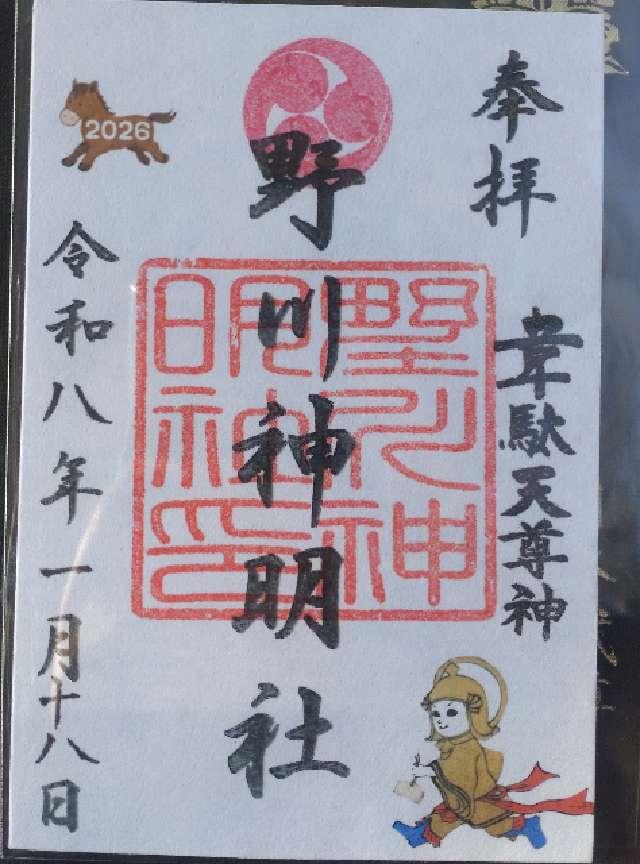 奉拝
韋駄天尊神
野川神明社
野川神明社印
2026
令和八年一月十八日